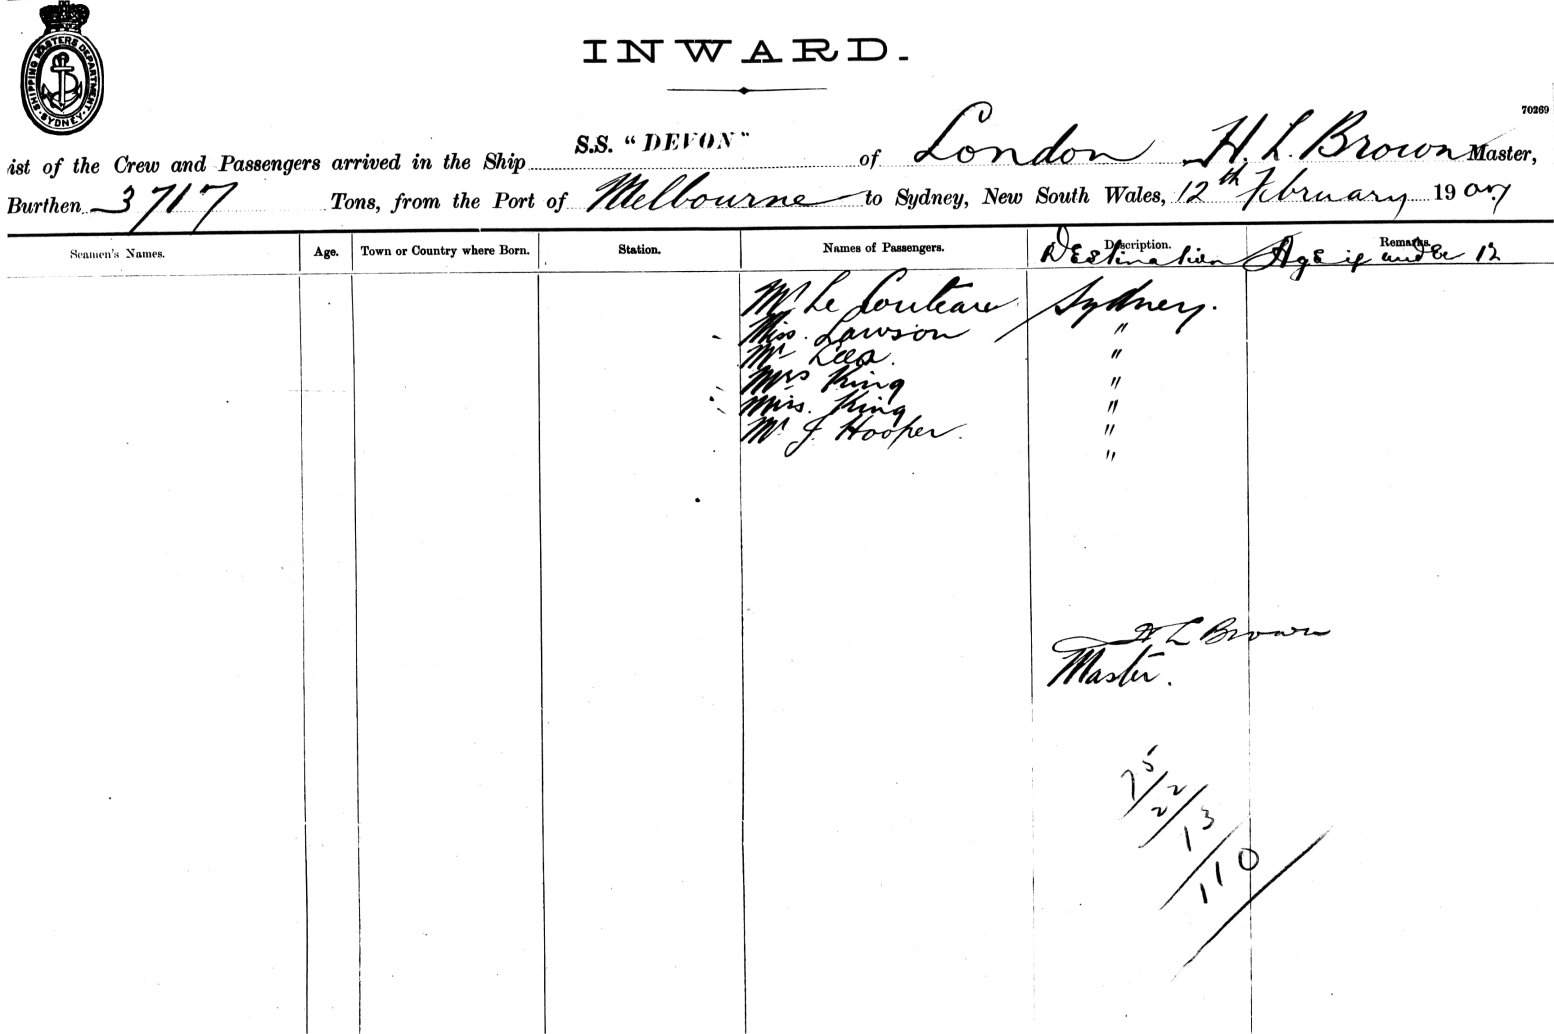 SHIPPING MASTERS DEPARTMENT SYDNEY
INWARD.
70269
ist of the Crew and Passengers arrived in the Ship S.S. "DEVON" of London H. L. Brown Master,
Burthen 3717 Tons, from the Port of Melbourne to Sydney, New South Wales, 12th February 1907
Seamen's Names. Age. Town or Country where Born. Station. Names of Passengers. Description. Remarks.
Destination Age if under 12
Mr Le Couteur Sydney.
Miss. Lawson "
Mr "
Mrs King "
Miss. King "
Mr J. Hooper. "
"
H L Brown
Master.
75/
22/
13/
110